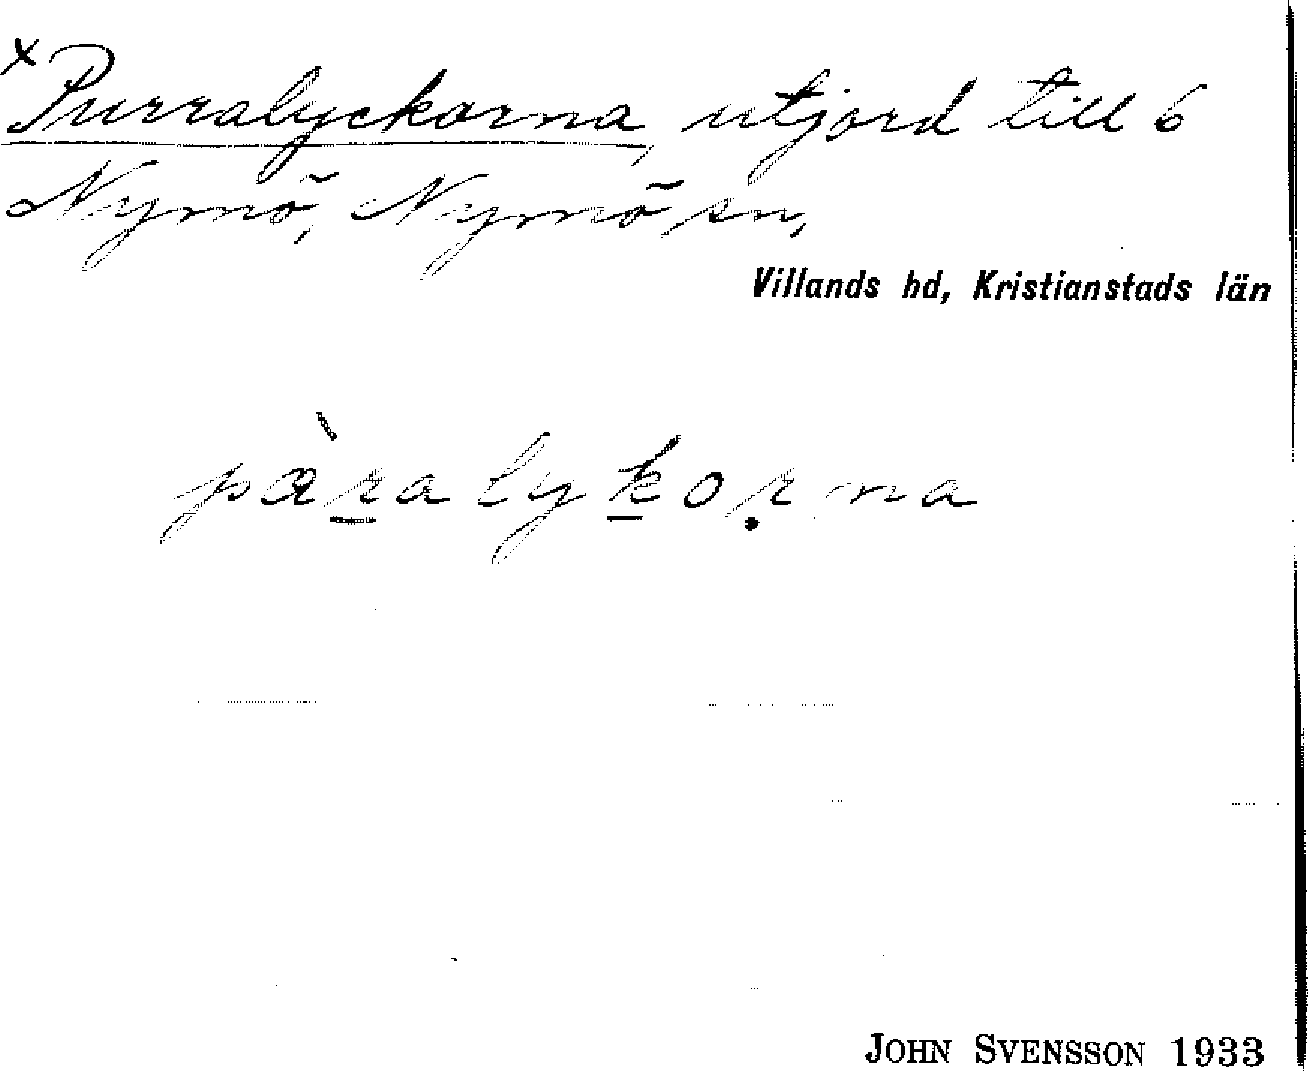 x
Purralyckorna, utjord till 6
Nymö, Nymö sn,
Villands hd, Kristianstads län
pæ̀ralykorna
JOHN SVENSSON 1933